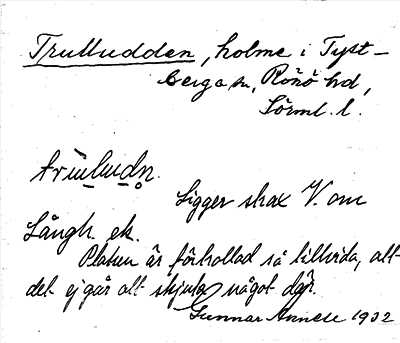 Trulludden, holme i Tyst-
berga sn, Rönö hd,
Sörml. l.
Ligger strax V. om
Långh. ek.
Platsen är förtrollad så tillvida, att
det ej går att skjuta något där.
Gunnar 1932